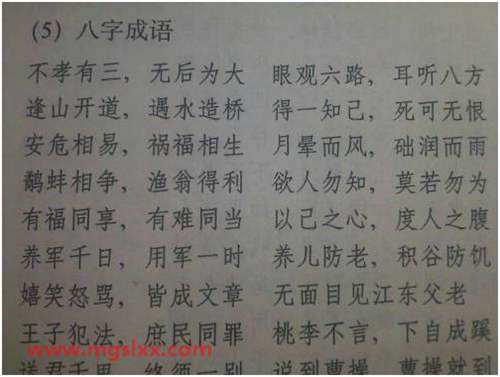 (5) 八字成语
不孝有三，无后为大 眼观六路，耳听八方
逢山开道，遇水造桥 得一知己，死可无恨
安危相易，祸福相生 月晕而风，础润而雨
鹬蚌相争，渔翁得利 欲人勿知，莫若勿为
有福同享，有难同当 以己之心，度人之腹
养军千日，用军一时 养儿防老，积谷防饥
嬉笑怒骂，皆成文章 无面目见江东父老
王子犯法，庶民同罪 桃李不言，下自成蹊
www.mgslxx.com
送君千里，终须一别 说到曹操，曹操就到